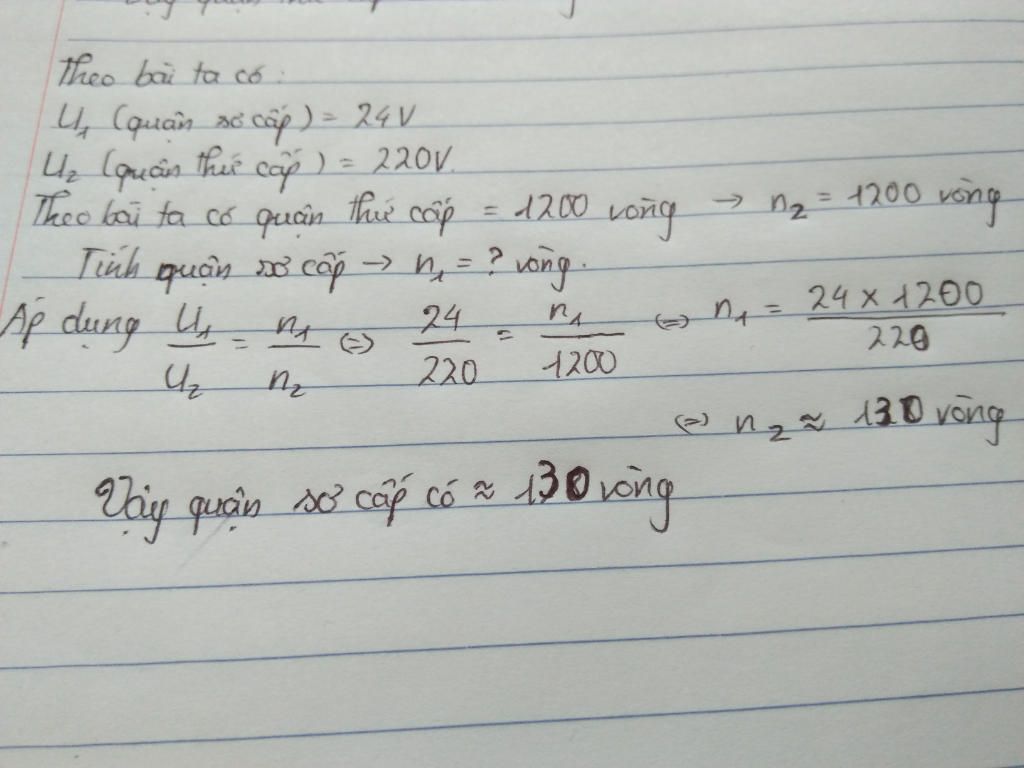 Theo bài ta có:
U₁ (quận sơ cấp) = 24V
U₂ (quận thứ cấp) = 220V.
Theo bài ta có quận thứ cấp = 1200 vòng → n₂ = 1200 vòng
Tính quận sơ cấp → n₁ = ? vòng.
Áp dụng U₁/U₂ = n₁/n₂ ⇔ 24/220 = n₁/1200 ⇔ n₁ = (24 × 1200)/220
⇔ n₂ ≈ 130 vòng
Vậy quận sơ cấp có ≈ 130 vòng